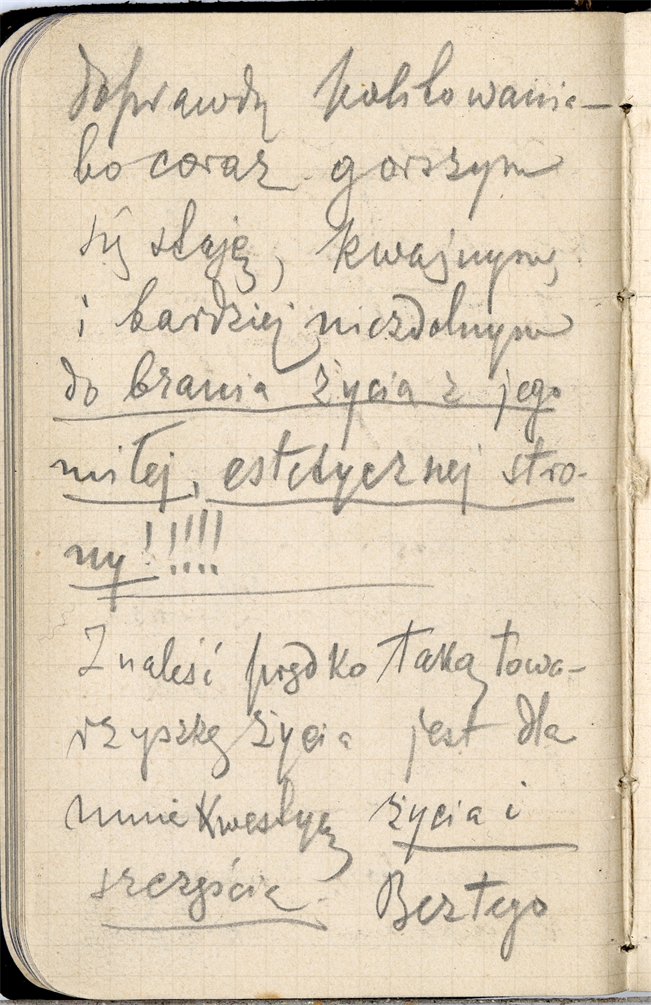 doprawdy politowania –
bo coraz gorszym
się staję, kwaśnym,
i bardziej niezdolnym
do brania życia z jego
miłej, estetycznej stro-
ny!!!!!
Znaleść prędko taką towa-
rzyszkę życia jest dla
mnie kwestyą życia i
szczęścia. Bez tego